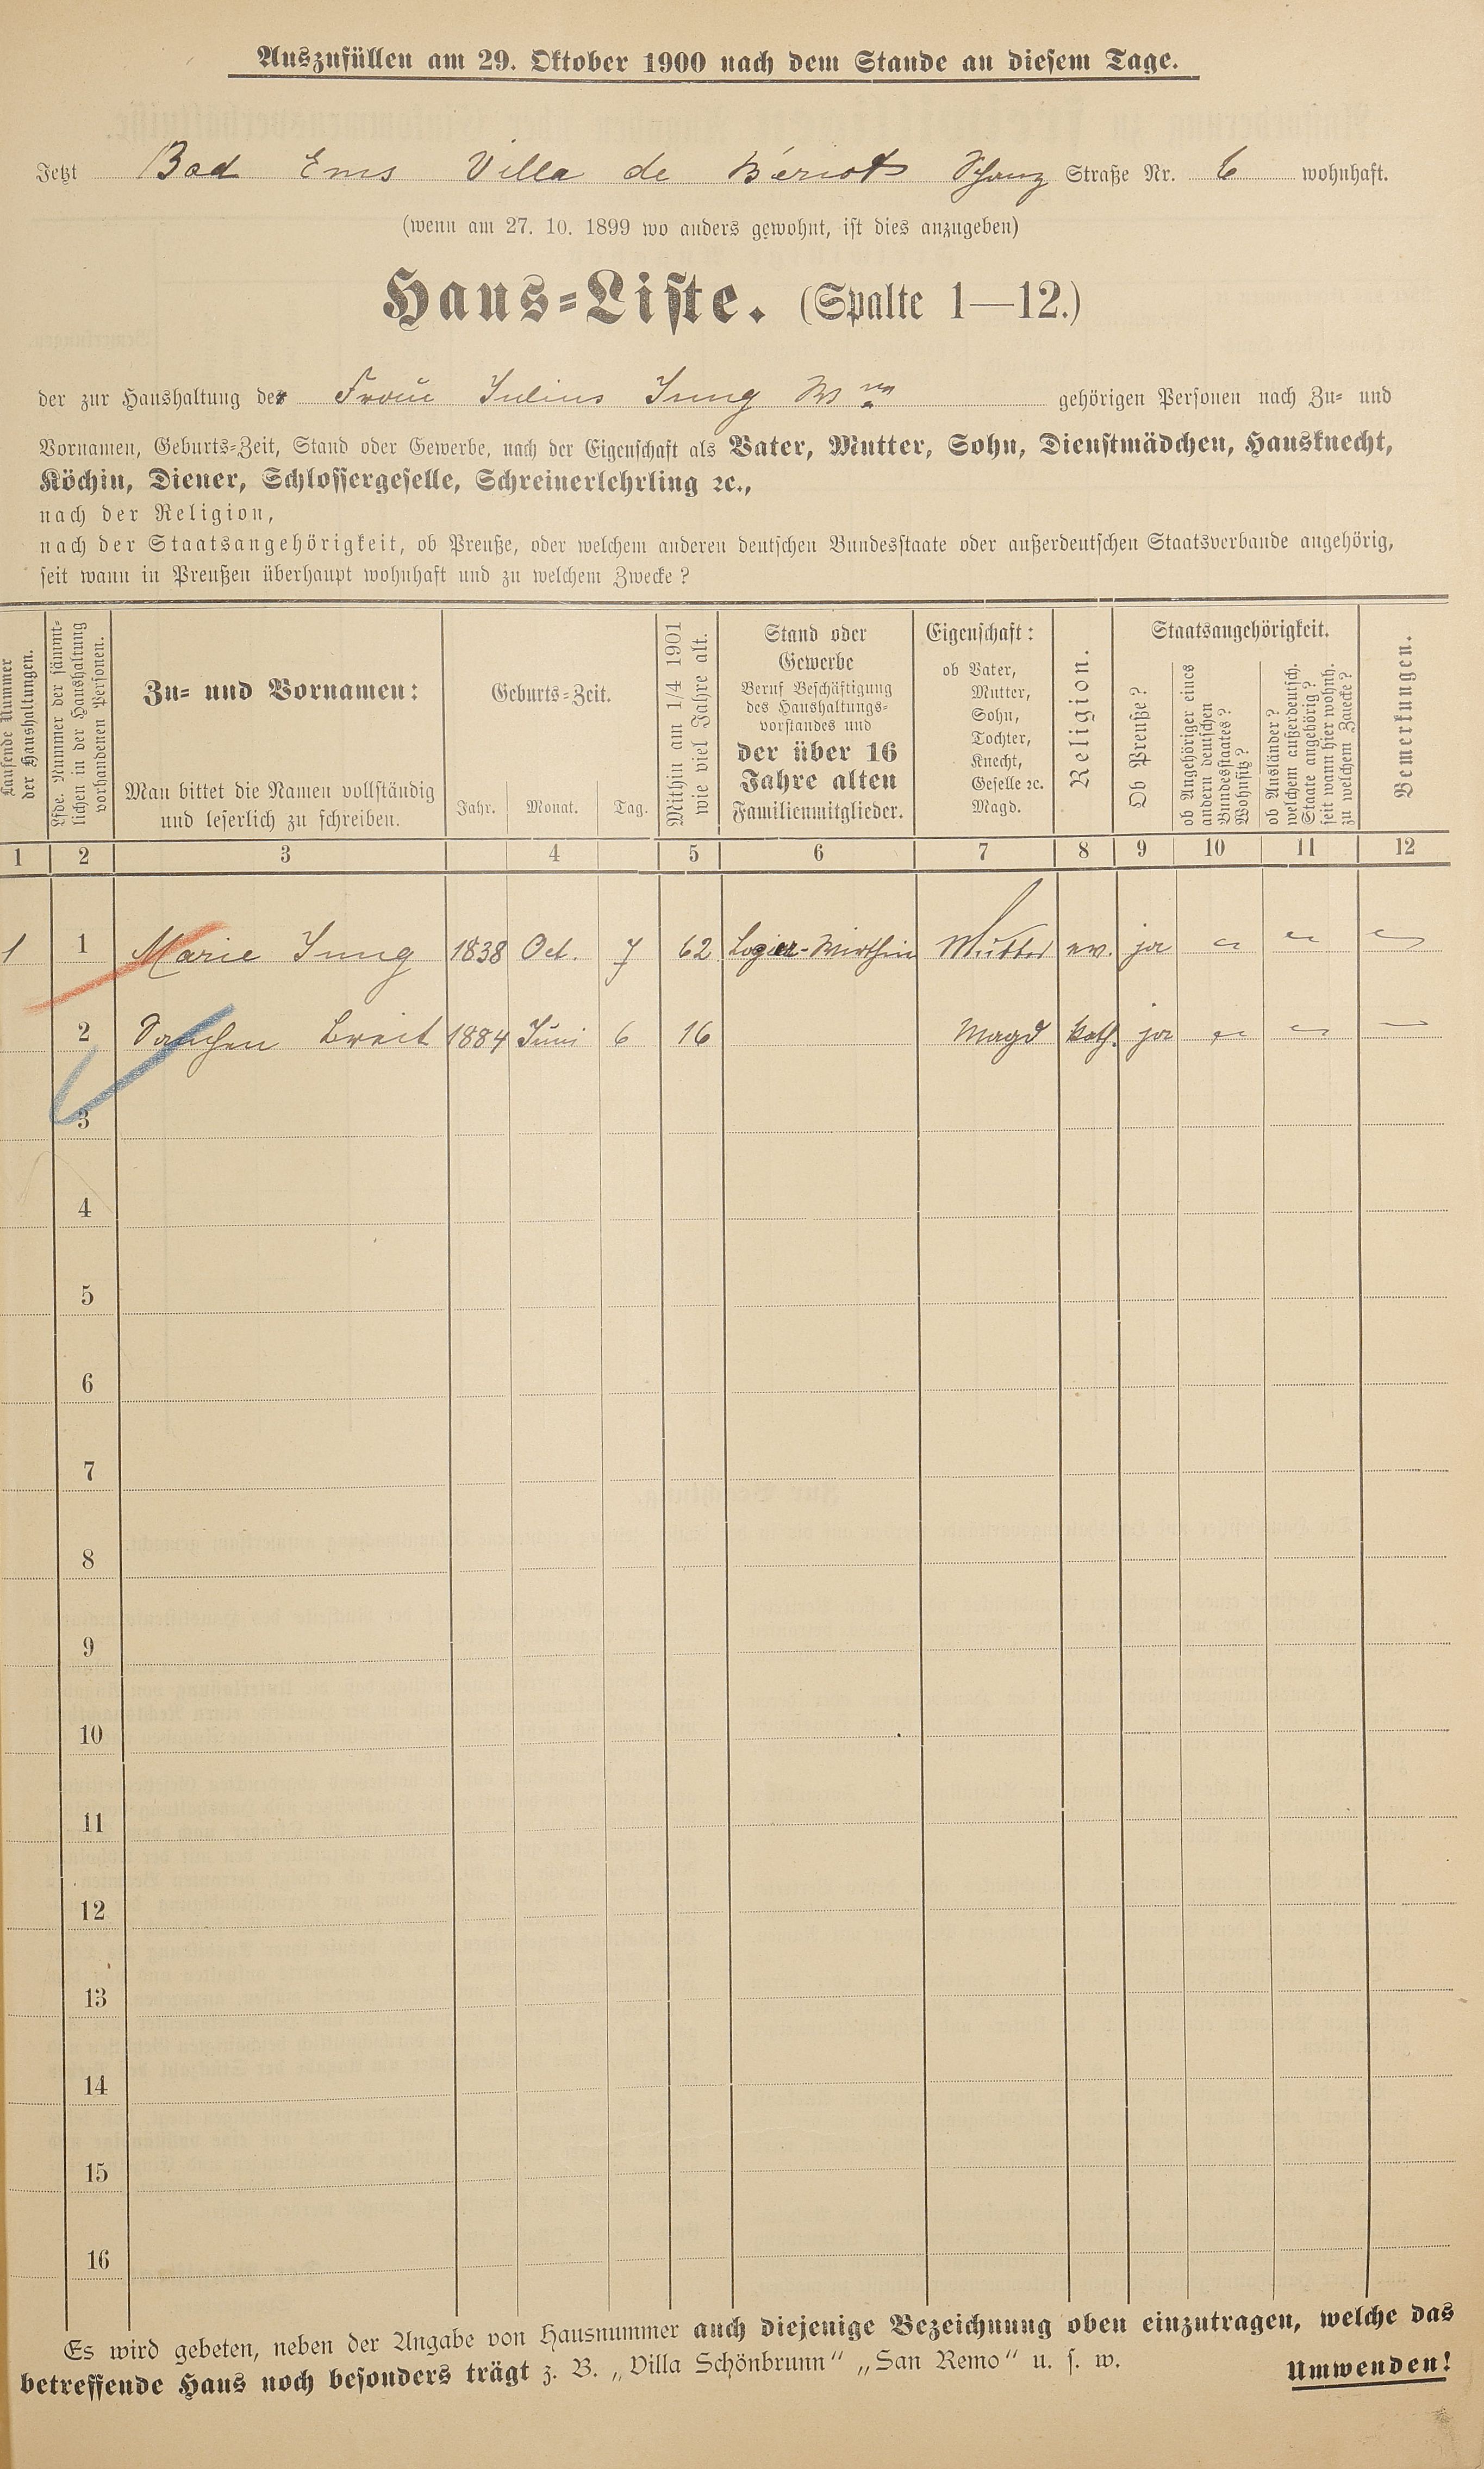 Auszufüllen am 29. Oktober 1900 nach dem Stande an diesem Tage.
Jetzt Bad Ems Villa de Bériot Schanz Straße Nr. 6 wohnhaft.
(wenn am 27. 10. 1899 wo anders gewohnt, ist dies anzugeben)
Haus-Liste. (Spalte 1—12.)
der zur Haushaltung der Frau Julius Jung Wwe gehörigen Personen nach Zu- und
Vornamen, Geburts-Zeit, Stand oder Gewerbe, nach der Eigenschaft als Vater, Mutter, Sohn, Dienstmädchen, Hausknecht,
Köchin, Diener, Schlossergeselle, Schreinerlehrling ꝛc.,
nach der Religion,
nach der Staatsangehörigkeit, ob Preuße, oder welchem anderen deutschen Bundesstaate oder außerdeutschen Staatsverbande angehörig,
seit wann in Preußen überhaupt wohnhaft und zu welchem Zwecke?
Laufende Nummer
der Haushaltungen.
Lfde. Nummer der sämmt-
lichen in der Haushaltung
vorhandenen Personen.
Zu- und Vornamen:
Man bittet die Namen vollständig
und leserlich zu schreiben.
Geburts-Zeit.
Jahr. Monat. Tag.
Mithin am 1/4 1901
wie viel Jahre alt.
Stand oder
Gewerbe
Beruf Beschäftigung
des Haushaltungs-
vorstandes und
der über 16
Jahre alten
Familienmitglieder.
Eigenschaft:
ob Vater,
Mutter,
Sohn,
Tochter,
Knecht,
Geselle ꝛc.
Magd.
Religion.
Staatsangehörigkeit.
Ob Preuße?
ob Angehöriger eines
andern deutschen
Bundesstaates?
Wohnsitz?
ob Ausländer?
welchem außerdeutsch.
Staate angehörig?
seit wann hier wohnh.
zu welchem Zwecke?
Bemerkungen.
1 2 3 4 5 6 7 8 9 10 11 12
1 1 Marie Jung 1838 Oct. 7 62 Logier-Wirthin Mutter ev. ja
2 Breit 1884 Juni 6 16 Magd kath. ja
3
4
5
6
7
8
9
10
11
12
13
14
15
16
Es wird gebeten, neben der Angabe von Hausnummer auch diejenige Bezeichnung oben einzutragen, welche das
betreffende Haus noch besonders trägt z. B. „Villa Schönbrunn“ „San Remo“ u. s. w.
Umwenden!